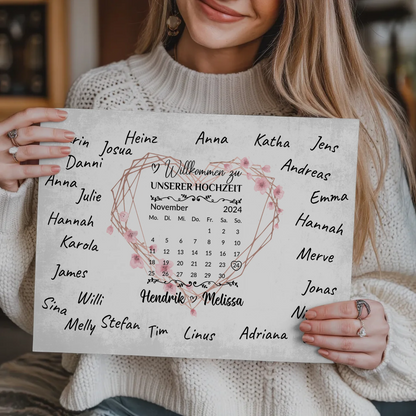 Heinz
Anna
Katha
Jens
Josua
Danni
Willkommen zu
UNSERER HOCHZEIT
Andreas
Anna
Julie
Emma
November 2024
Mo. Di. Mi. Do. Fr. Sa. So.
1 2 3
4 5 6 7 8 9 10
11 12 13 14 15 16 17
18 19 20 21 22 23 24
25 26 27 28 29 30
Hannah
Hannah
Karola
Merve
James
Jonas
Hendrik Melissa
Sina
Willi
Melly
Stefan
Tim
Linus
Adriana